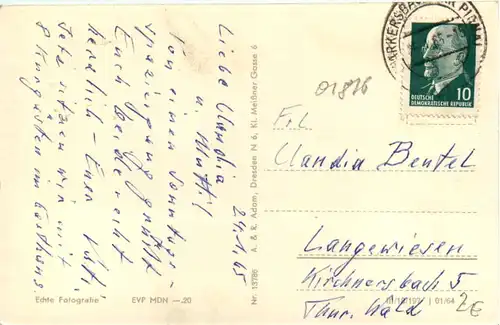 Liebe Claudia
u. Mutti!
24.1.65
Von einem Sonntags-
spaziergang grüßt
Euch beide recht
herzlich – Euer Vati
Jetzt sitzen wir mit
8 Kurgästen im Gasthaus.
Echte Fotografie EVP MDN —.20
Nr. 13786 A. & R. Adam, Dresden N 6, Kl. Meißner Gasse 6
MARKERSBACH
10
DEUTSCHE
DEMOKRATISCHE REPUBLIK
Frl.
Claudia Bentel
Langewiesen
Kirchnersbach 5
Thür. Wald
01/64
2€